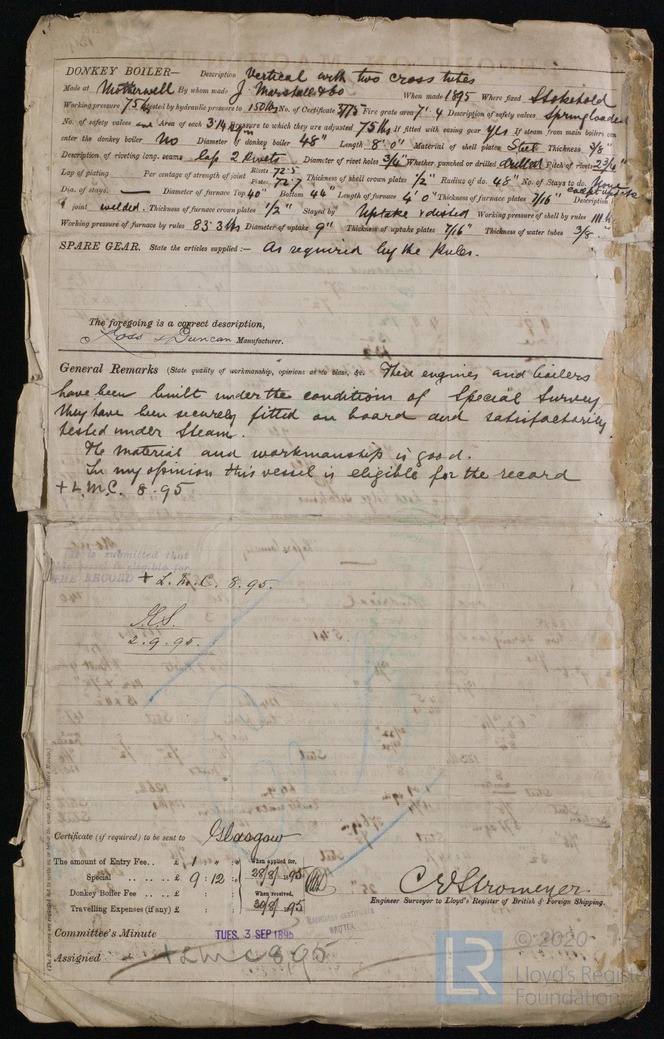 DONKEY BOILER— Description Vertical with two cross tubes
Made at Motherwell By whom made J Marshall & Co When made 1895 Where fixed Stokehold
Working pressure 75 lbs tested by hydraulic pressure to 150 lbs No. of Certificate 3/73 Fire grate area 7'.4 Description of safety valves Spring loaded
No. of safety valves Area of each 3.14 Pressure to which they are adjusted 75 lbs If fitted with easing gear yes If steam from main boilers can
enter the donkey boiler No Diameter of donkey boiler 48" Length 8'.0" Material of shell plates Steel Thickness 3/8"
Description of riveting long. seams Lap 2 Rivets Diameter of rivet holes 3/4" Whether punched or drilled drilled Pitch of rivets 2 3/4"
Lap of plating Per centage of strength of joint Rivets 72.5 Plates 72.7 Thickness of shell crown plates 1/2" Radius of do. 48" No. of Stays to do. None
Dia. of stays. — Diameter of furnace Top 40" Bottom 44" Length of furnace 4'.0" Thickness of furnace plates 7/16" Description of
joint welded. Thickness of furnace crown plates 1/2" Stayed by Uptake & dished Working pressure of shell by rules 111 lbs
Working pressure of furnace by rules 83.3 lbs Diameter of uptake 9" Thickness of uptake plates 7/16" Thickness of water tubes 3/8"
SPARE GEAR. State the articles supplied:— As required by the Rules.
The foregoing is a correct description,
Ross & Duncan Manufacturer.
General Remarks (State quality of workmanship, opinions as to class, &c. These engines and boilers
have been built under the conditions of Special Survey
they have been securely fitted on board and satisfactorily
tested under steam.
The material and workmanship is good.
In my opinion this vessel is eligible for the record
+ L.M.C. 8.95
It is submitted that
this vessel is eligible for
THE RECORD + L.M.C. 8.95.
2.9.95.
Certificate (if required) to be sent to Glasgow
The amount of Entry Fee.. £ 1 : " : " When applied for,
Special .. .. .. £ 9 : 12 : 28/8/95
Donkey Boiler Fee .. .. .. £ : : When received,
Travelling Expenses (if any) £ : : 30/8/95
C E Stromeyer.
Engineer Surveyor to Lloyd's Register of British & Foreign Shipping.
Committee's Minute TUES. 3 SEP 1895
Assigned + LMC 8.95
LR © 2020
Lloyd's Register
Foundation